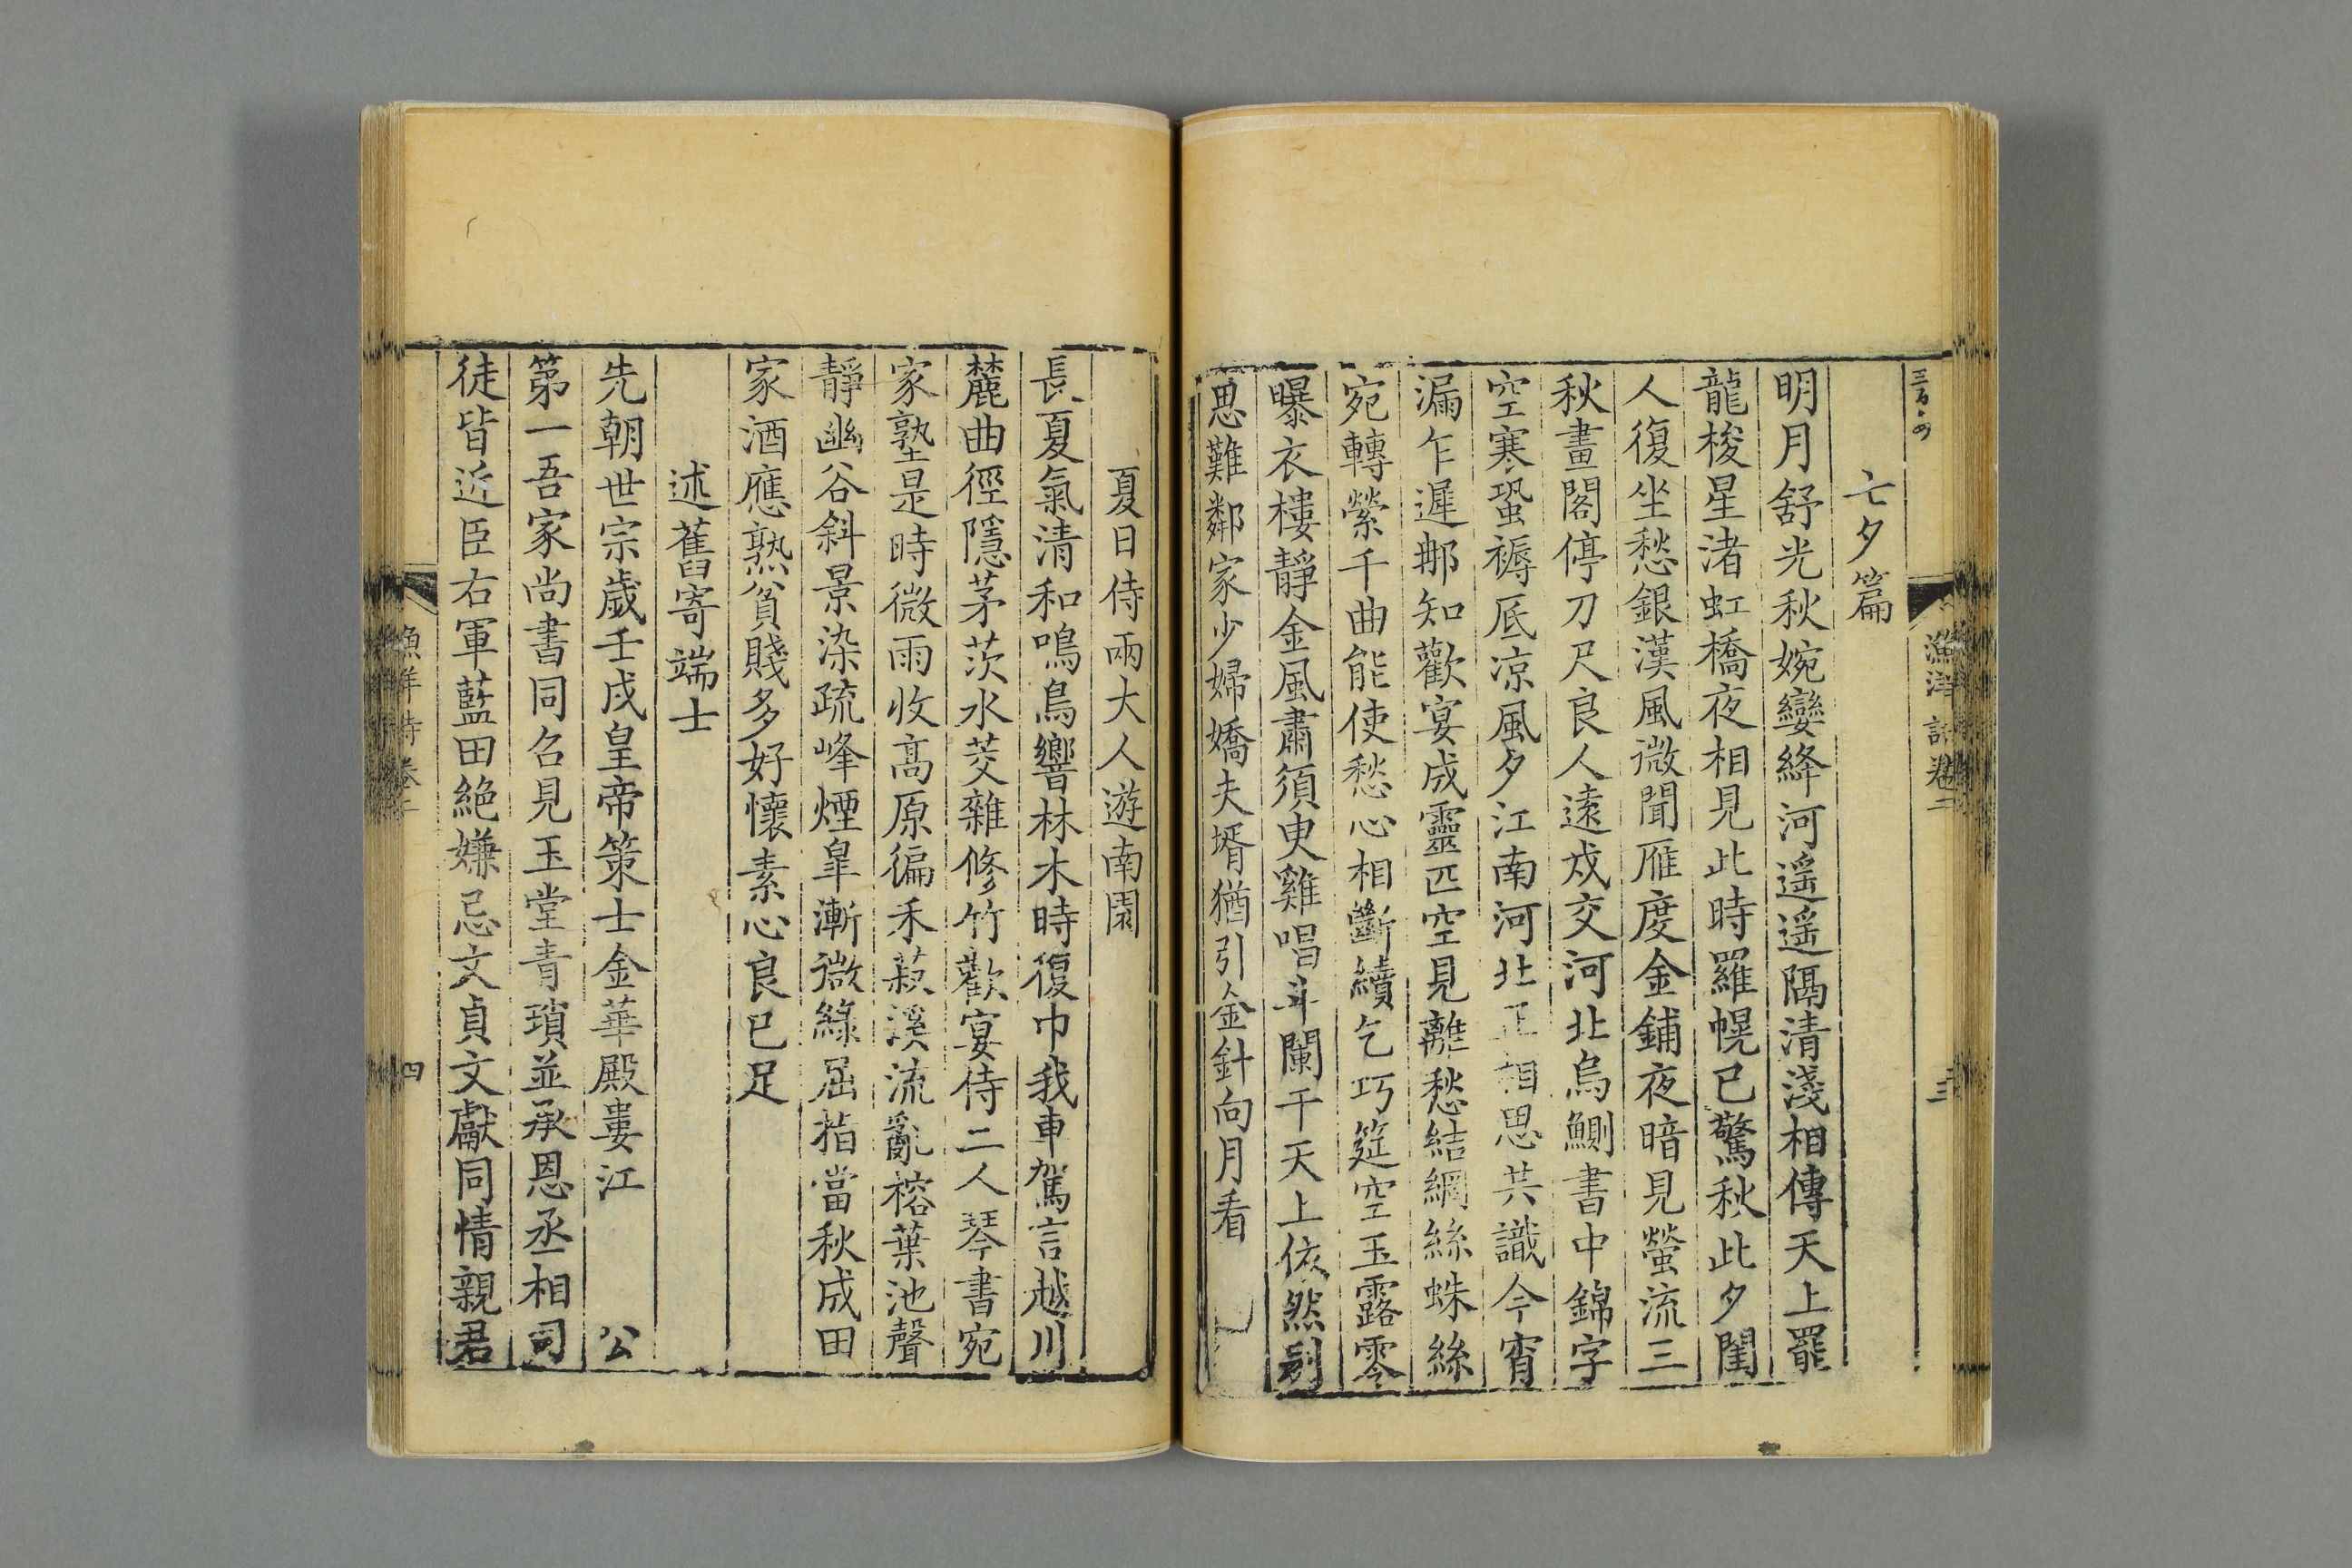 七夕篇
明月舒光秋婉孌絳河遥遥隔清淺相傳天上罷
龍梭星渚虹橋夜相見此時羅幌已驚秋此夕閨
人復坐愁銀漢風微聞雁度金鋪夜暗見螢流三
秋畫閣停刀尺良人遠戍交河北烏鰂書中錦字
空寒蛩褥底凉風夕江南河北正相思共識今宵
漏乍遲那知歡宴成靈匹空見離愁結網絲蛛絲
宛轉縈千曲能使愁心相斷續乞巧筵空玉露零
曝衣樓靜金風肅須臾雞唱斗闌干天上依然别
思難鄰家少婦嬌夫壻猶引金針向月看
漁洋詩卷二
三
夏日侍兩大人遊南園
長夏氣清和鳴鳥響林木時復巾我車駕言越川
麓曲徑隱茅茨水茭雜修竹歡宴侍二人琴書宛
家塾是時微雨收髙原徧禾菽溪流亂榕葉池聲
靜幽谷斜景染疏峰煙皐漸微綠屈指當秋成田
家酒應熟貧賤多好懷素心良已足
述舊寄端士
先朝世宗歲壬戌皇帝策士金華殿婁江 公
第一吾家尚書同召見玉堂青瑣並承恩丞相司
徒皆近臣右軍藍田絶嫌忌文貞文獻同情親君
漁洋詩卷二
四